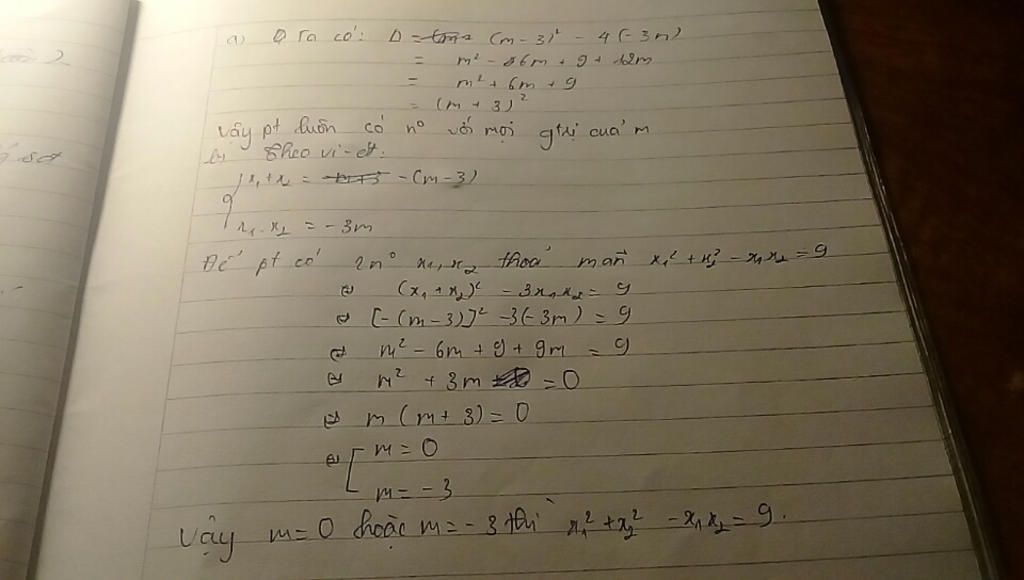 a) Ta có: Δ = (m-3)² - 4(-3m)
= m² - 6m + 9 + 12m
= m² + 6m + 9
= (m + 3)²
Vậy pt luôn có n° với mọi gtrị của m
b) Theo vi-ét:
x₁ + x₂ = -(m-3)
x₁.x₂ = -3m
Để pt có 2n° x₁, x₂ thoả mãn x₁² + x₂² - x₁x₂ = 9
⇔ (x₁ + x₂)² - 3x₁x₂ = 9
⇔ [-(m-3)]² - 3(-3m) = 9
⇔ m² - 6m + 9 + 9m = 9
⇔ m² + 3m = 0
⇔ m(m + 3) = 0
⇔ [ m = 0
m = -3
Vậy m = 0 hoặc m = -3 thì x₁² + x₂² - x₁x₂ = 9.